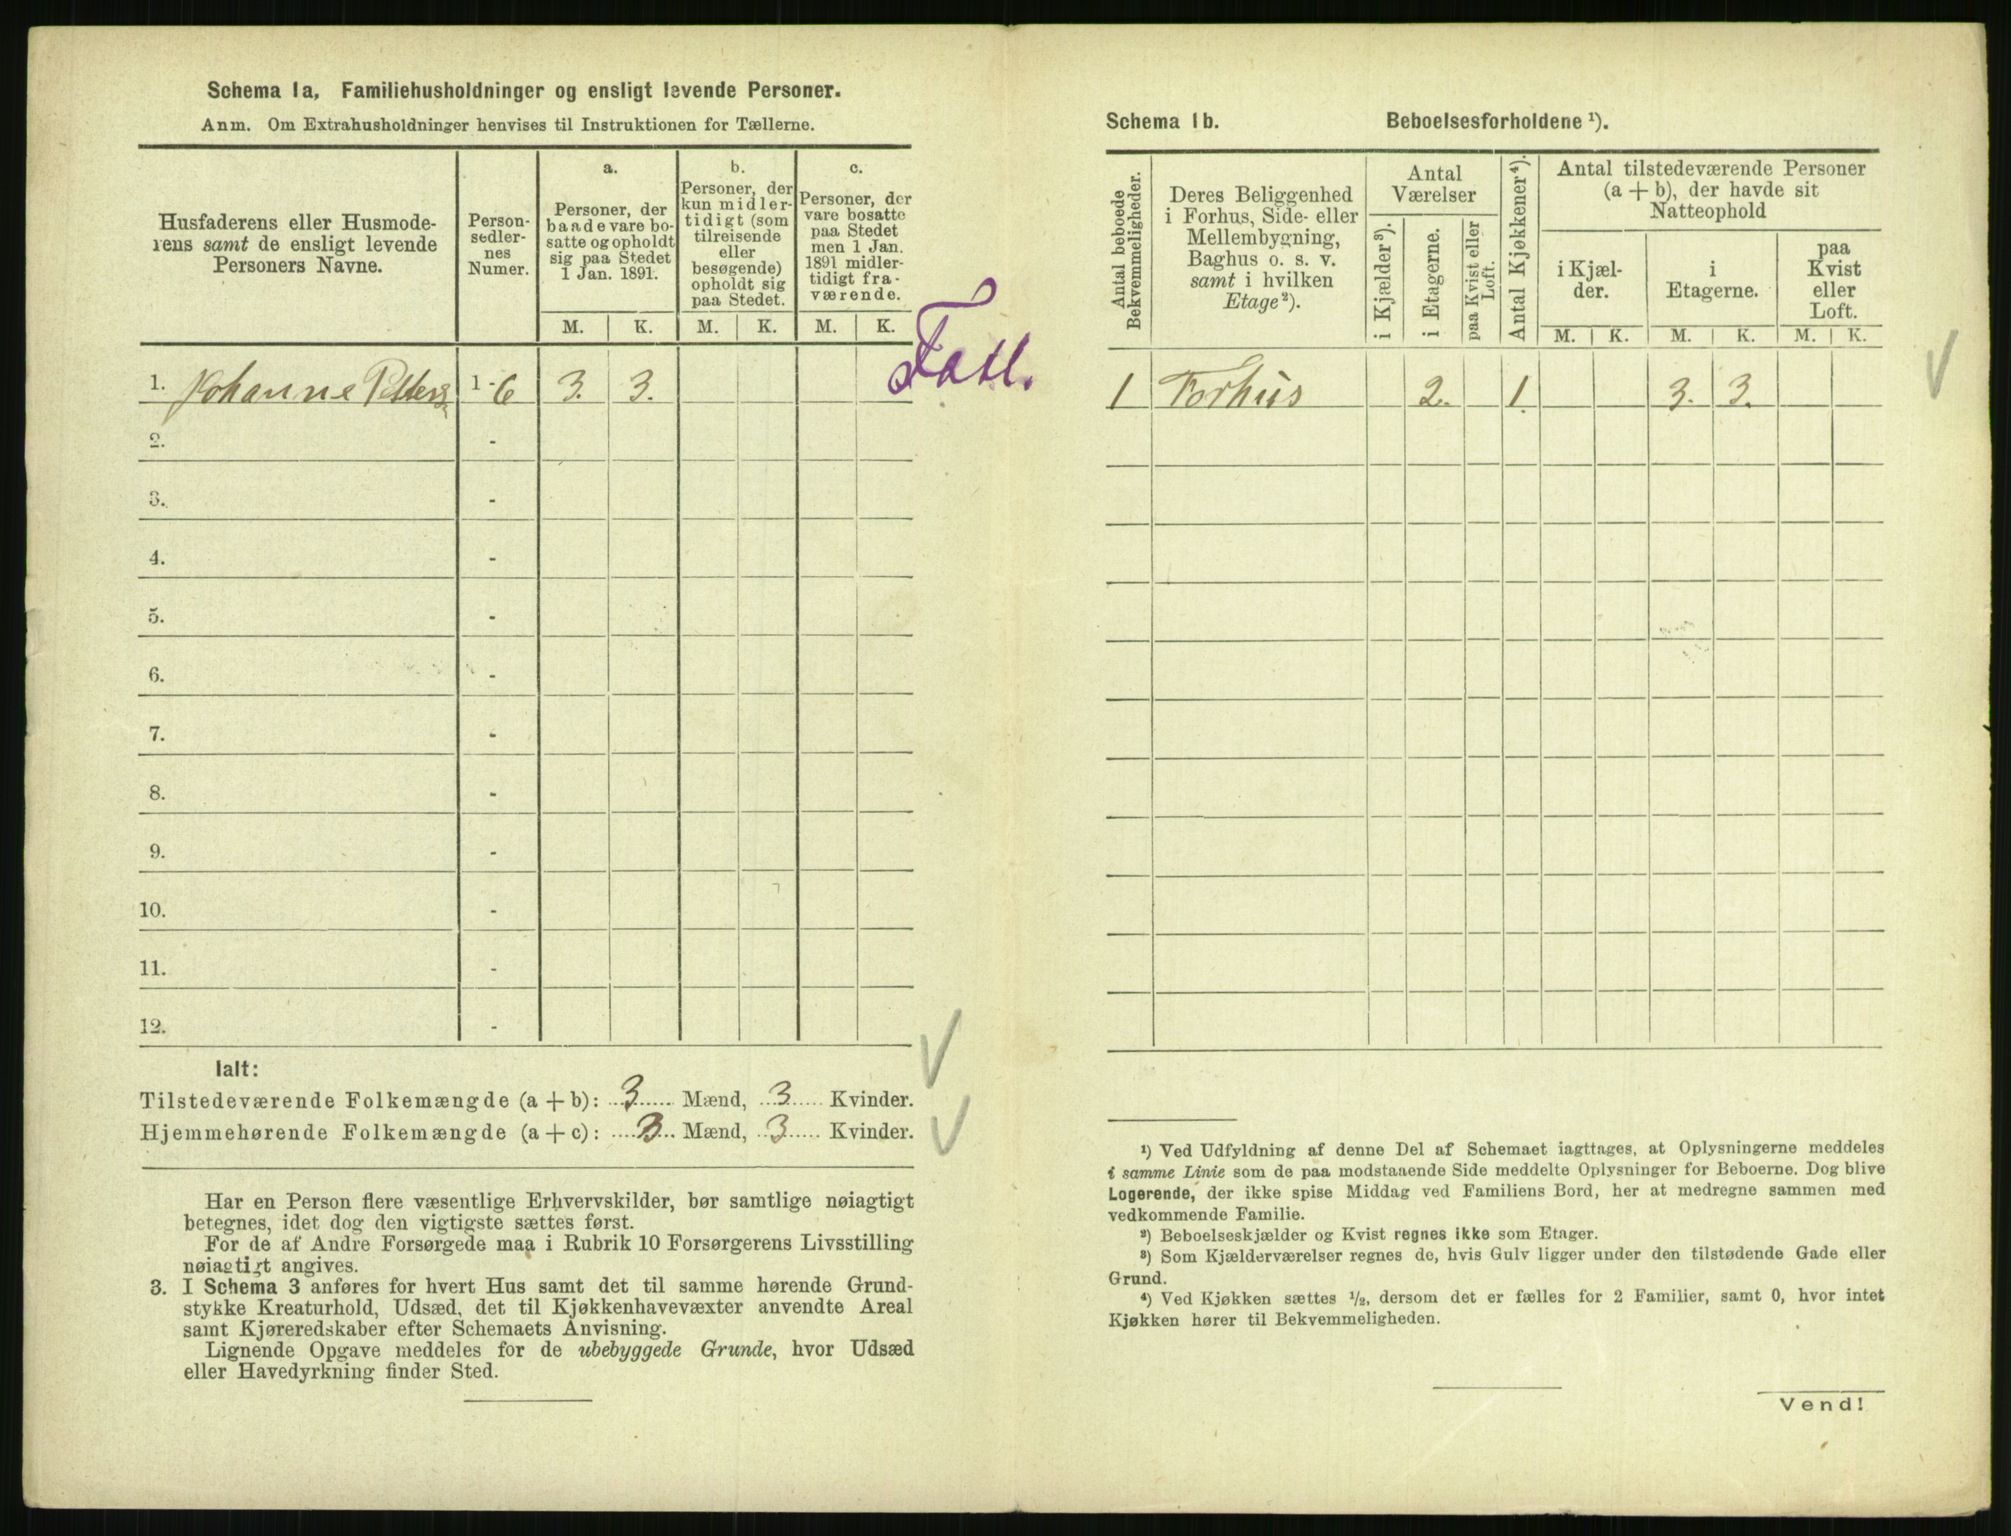 Schema 1a, Familiehusholdninger og ensligt levende Personer.
Anm. Om Extrahusholdninger henvises til Instruktionen for Tællerne.
Husfaderens eller Husmode-
rens samt de ensligt levende
Personers Navne.
Person-
sedler-
nes
Numer.
a.
Personer, der
baade vare bo-
satte og opholdt
sig paa Stedet
1 Jan. 1891.
b.
Personer, der
kun midler-
tidigt (som
tilreisende
eller
besøgende)
opholdt sig
paa Stedet.
c.
Personer, der
vare bosatte
paa Stedet
men 1 Jan.
1891 midler-
tidigt fra-
værende.
M. K. M. K. M. K.
1. Johanne Petters 1-6 3. 3.
2. -
3. -
4. -
5. -
6. -
7. -
8. -
9. -
10. -
11. -
12. -
Ialt:
Tilstedeværende Folkemængde (a + b): 3 Mænd, 3 Kvinder.
Hjemmehørende Folkemængde (a + c): 3 Mænd, 3 Kvinder.
Har en Person flere væsentlige Erhvervskilder, bør samtlige nøiagtigt
betegnes, idet dog den vigtigste sættes først.
For de af Andre Forsørgede maa i Rubrik 10 Forsørgerens Livsstilling
nøiagtigt angives.
3. I Schema 3 anføres for hvert Hus samt det til samme hørende Grund-
stykke Kreaturhold, Udsæd, det til Kjøkkenhavevæxter anvendte Areal
samt Kjøreredskaber efter Schemaets Anvisning.
Lignende Opgave meddeles for de ubebyggede Grunde, hvor Udsæd
eller Havedyrkning finder Sted.
Schema 1b. Beboelsesforholdene ¹).
Antal beboede
Bekvemmeligheder.
Deres Beliggenhed
i Forhus, Side- eller
Mellembygning,
Baghus o. s. v.
samt i hvilken
Etage²).
Antal
Værelser
i Kjælder³).
i Etagerne.
paa Kvist eller
Loft.
Antal Kjøkkener⁴).
Antal tilstedeværende Personer
(a + b), der havde sit
Natteophold
i Kjæl-
der.
i
Etagerne.
paa
Kvist
eller
Loft.
M. K. M. K. M. K.
1 Forhus 2. 1. 3. 3.
¹) Ved Udfyldning af denne Del af Schemaet iagttages, at Oplysningerne meddeles
i samme Linie som de paa modstaaende Side meddelte Oplysninger for Beboerne. Dog blive
Logerende, der ikke spise Middag ved Familiens Bord, her at medregne sammen med
vedkommende Familie.
²) Beboelseskjælder og Kvist regnes ikke som Etager.
³) Som Kjælderværelser regnes de, hvis Gulv ligger under den tilstødende Gade eller
Grund.
⁴) Ved Kjøkken sættes ½, dersom det er fælles for 2 Familier, samt 0, hvor intet
Kjøkken hører til Bekvemmeligheden.
Vend!